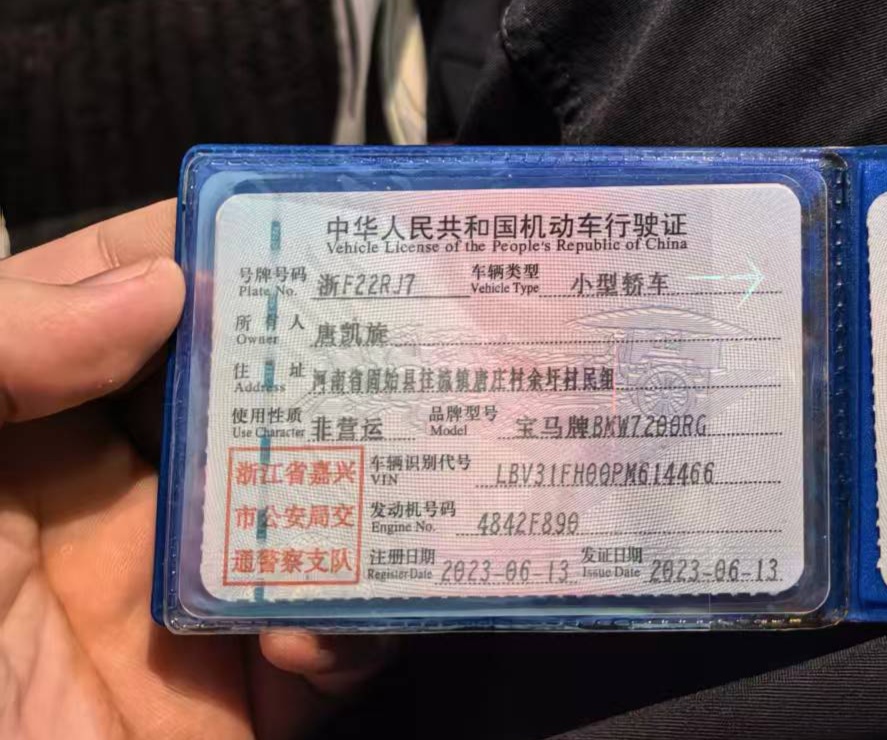 中华人民共和国机动车行驶证
Vehicle License of the People's Republic of China
号牌号码 浙F22RJ7 车辆类型 小型轿车
Plate No. Vehicle Type
所有人 唐凯旋
Owner
住址 河南省固始县往流镇唐庄村余圩村民组
Address
使用性质 非营运 品牌型号 宝马牌BMW7200RG
Use Character Model
浙江省嘉兴
市公安局交
通警察支队
车辆识别代号 LBV31FH00PM614466
VIN
发动机号码 4842F890
Engine No.
注册日期 2023-06-13 发证日期 2023-06-13
Register Date Issue Date